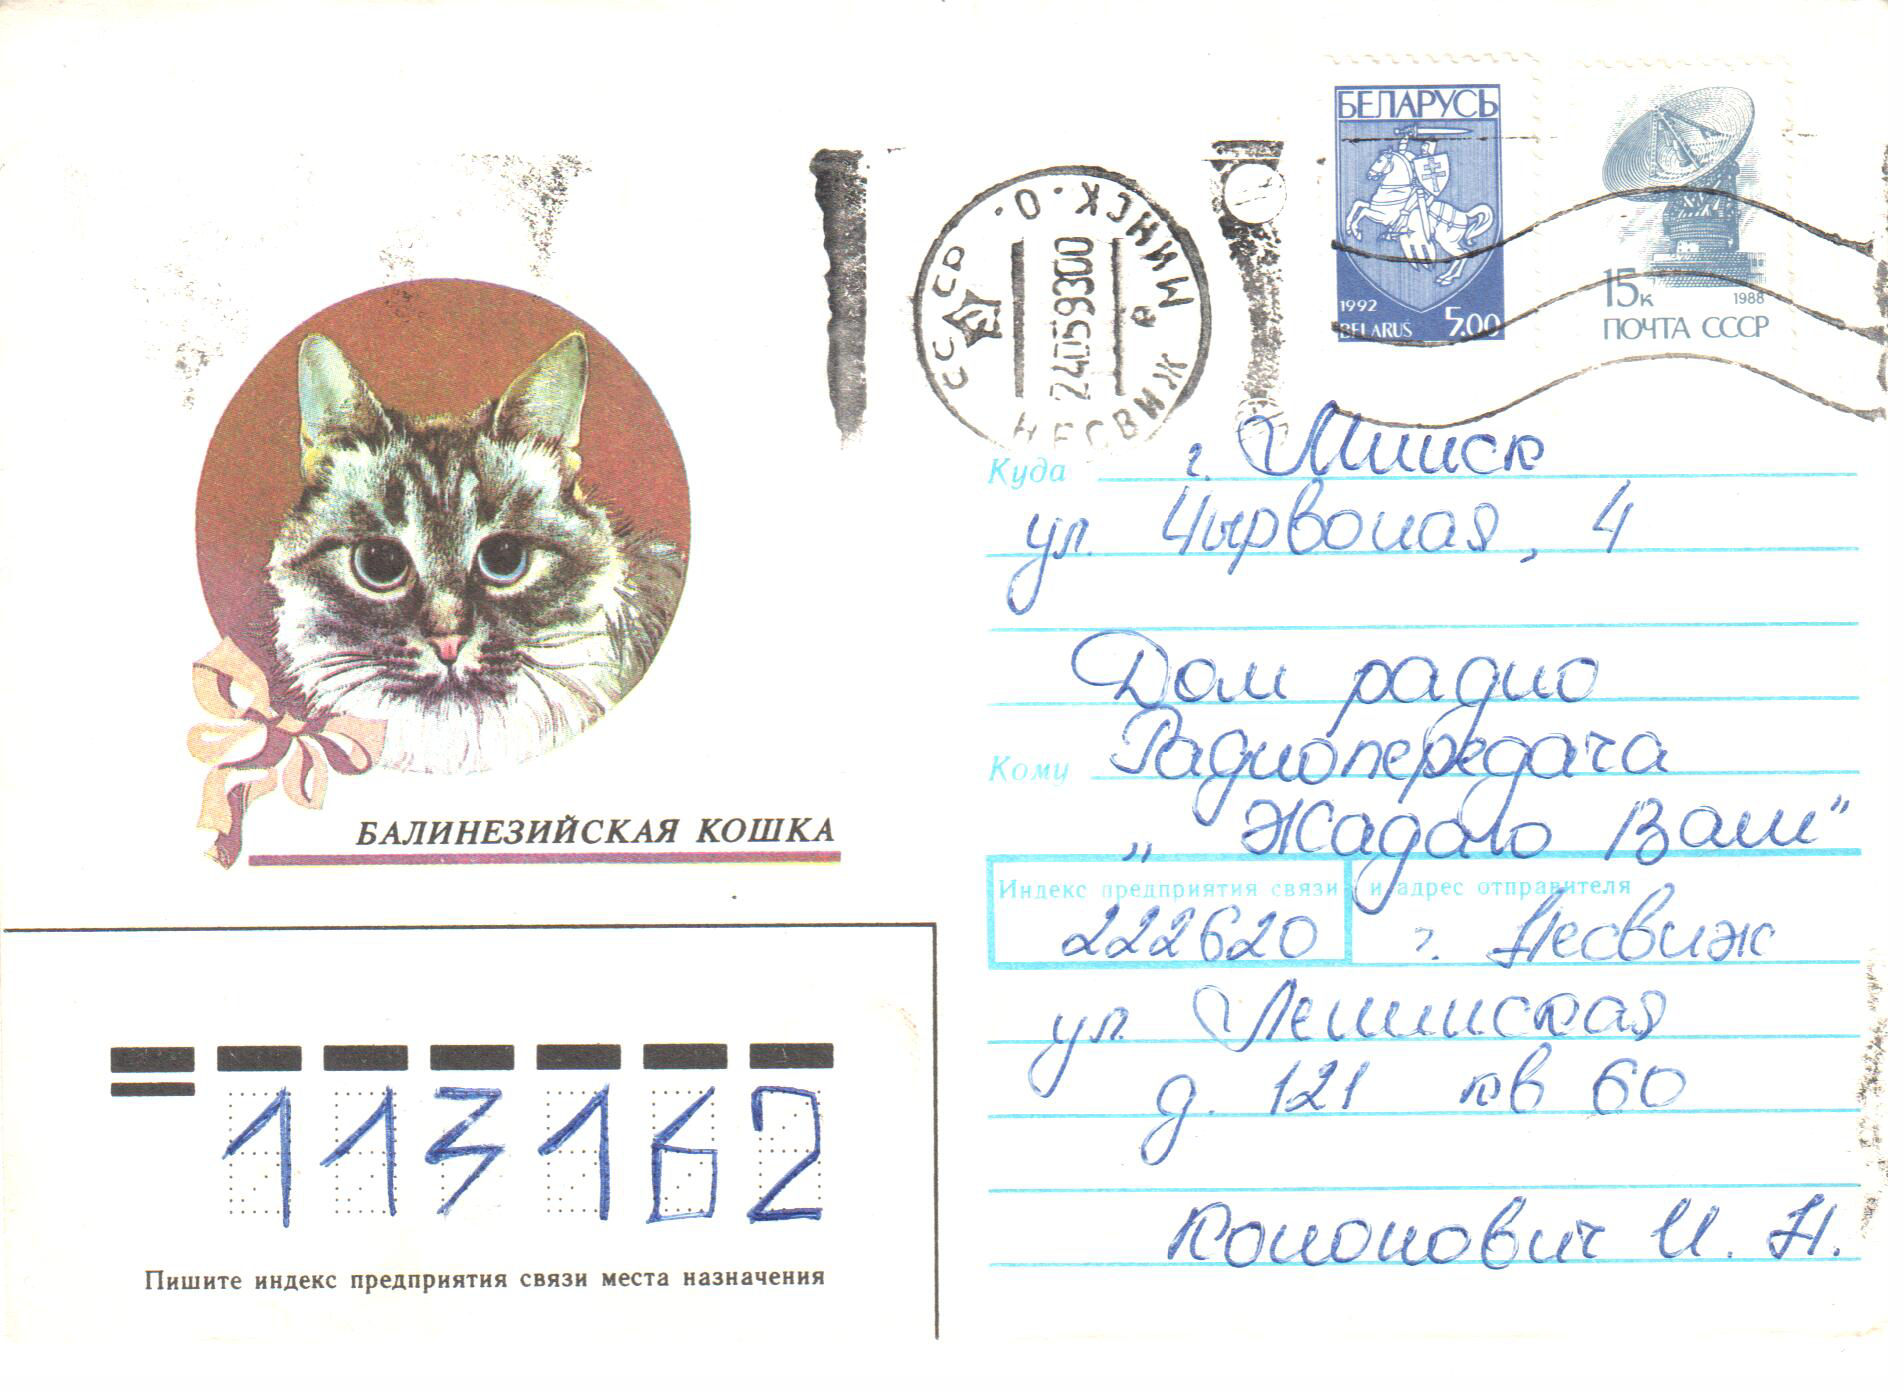 БЕЛАРУСЬ
1992
BELARUS 5.00
15к 1988
ПОЧТА СССР
СССР
МИНСК. О.
НЕСВИЖ е
2405930
Куда г. Минск
ул. Чырвоная, 4
Дом радио
Кому Радиопередача
„Жадаю Вам"
Индекс предприятия связи и адрес отправителя
222620 г. Несвиж
ул. Ленинская
д. 121 кв 60
Кононович И. Н.
БАЛИНЕЗИЙСКАЯ КОШКА
113162
Пишите индекс предприятия связи места назначения